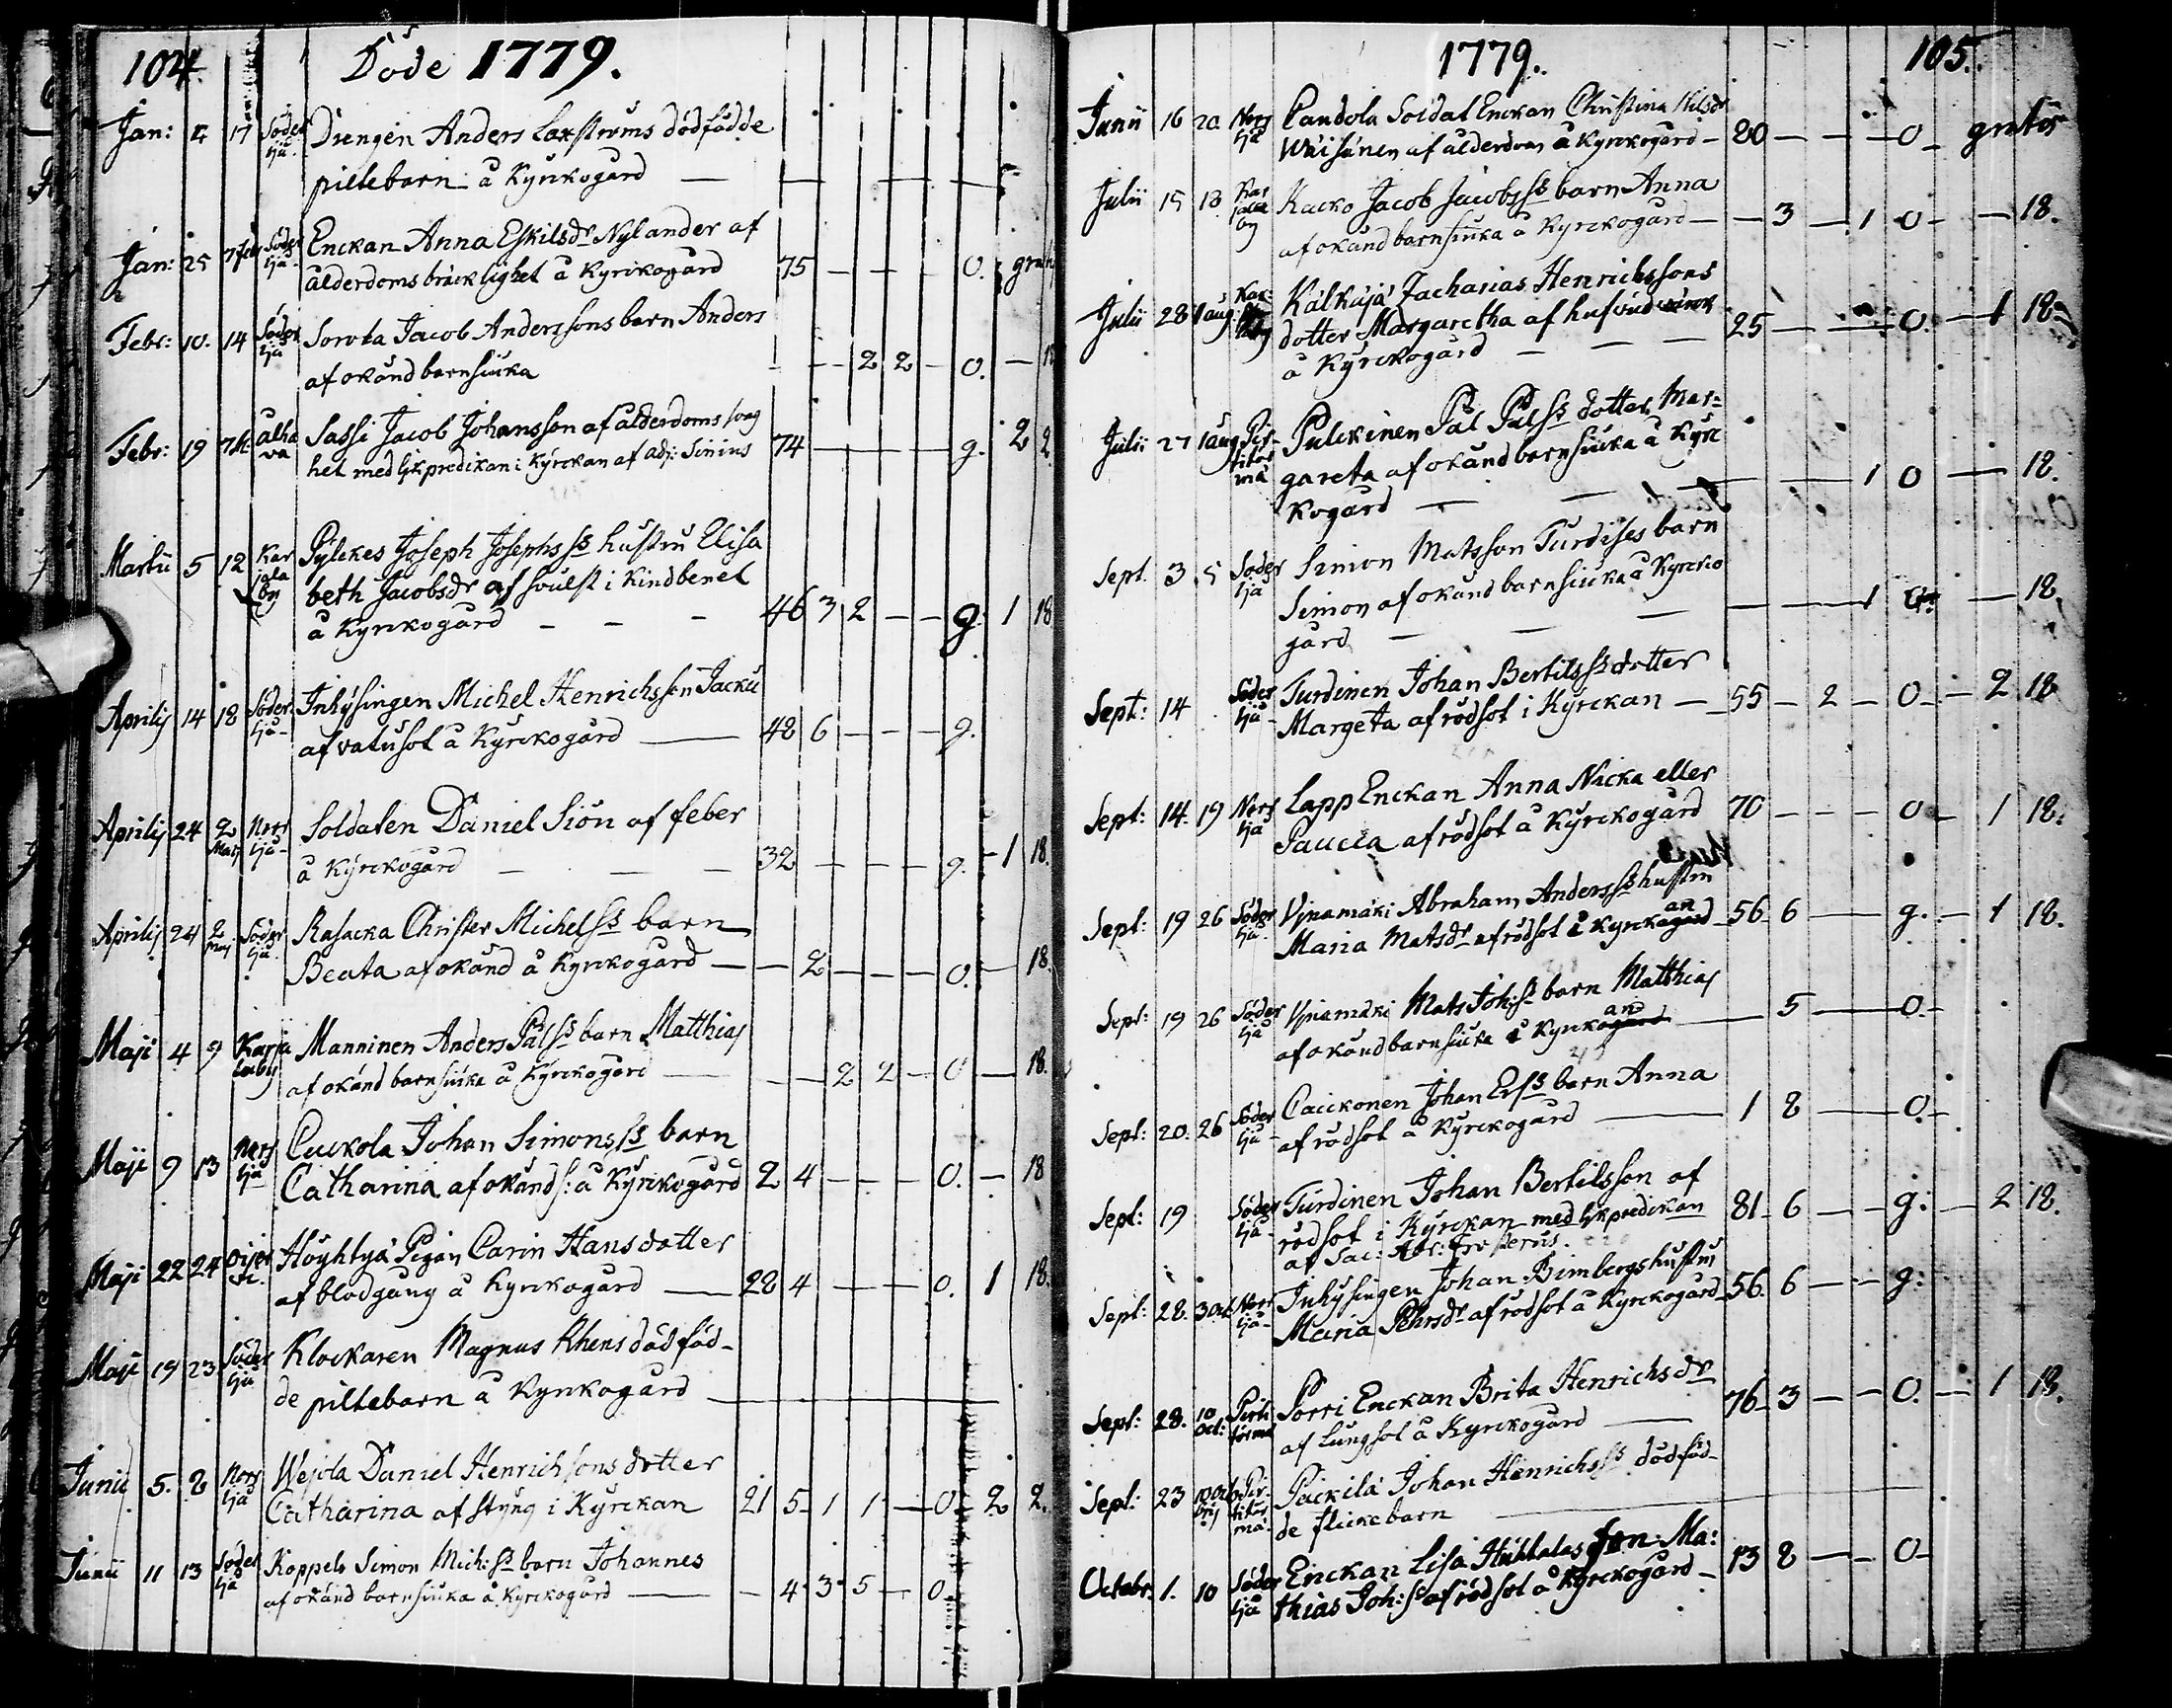 104. Döde 1779.
Jan: 17 Söder ljä. Drengen Anders Laxströms dödfödde
piltebarn å Kyrkogård —
Jan: 25 7 feb Söder ljä. Enckan Anna Eskilsdr Nylander af
ålderdoms bräcklighet å Kyrckogård 75 — — — 0.
Febr: 10. 14 Söder ljä Sorvta Jacob Anderssons barn Anders
af okänd barnsiuka — — 2 2 — 0. —
Febr: 19 alha va Sassi Jacob Johansson af ålderdoms svag
het med lijkpredikan i Kyrckan af adj: Sinius 74 — — — — g. 2 2.
Martii 5 12 Kar jala by Pylckes Joseph Josephsss hustru Elisa
beth Jacobsdr af svulst i Kindbenet
å Kyrckogård — — — 46 3 2 — — g. 1 18
Aprilij 14 18 Söder ljä- Inhysingen Michel Henrichsson Jackū
af vatusot å Kyrckogård — 48 6 — — — g.
Aprilij 24 2 Maij Norr ljä- Soldaten Daniel Siön af feber
å Kyrckogård — — — 32 — — — — g. — 1 18.
Aprilij 24 2 Maj Söder ljä. Rasacka Christer Michelss barn
Beata af okänd å Kyrckogård — — 2 — — — 0. — 18.
Maji 4 9 Karja laby Manninen Anders Pålss barn Matthias
af okänd barnsiuka å Kyrckogård — — — 2 2 — 0 — 18.
Maji 9 13 Norr ljä Cuckola Johan Simonsss barn
Catharina af okänd s: å Kyrckogård 2 4 — — — 0. — 18
Maji 22 24 Höyhtyä Pigan Carin Hansdotter
af blodgång å Kyrckogård — 28 4 — — — 0. 1 18.
Maji 19 23 Söder ljä Klockaren Magnus Rhens dödföd-
de piltebarn å Kyrckogård —
Junii 5. 8 Norr ljä Wejola Daniel Henrichsons dotter
Catharina af styng i Kyrckan 21 5 1 1 — 0 2 2.
Junii 11 13 Söder ljä Koppelo Simon Mich: ss barn Johannes
af okänd barnsiuka å Kyrckogård — — 4 3 5 — 0
1779. 105.
Junii 16 20 Norr ljä Candola Soldat Enckan Christina Nilsdr
Wäisänen af ålderdom å Kyrckogård — 80 — — — 0 — gratis
Julii 15 18 Kar jala by Kacko Jacob Jacobsss barn Anna
af okänd barnsiuka å Kyrckogård — — 3 — 1 0 — — 18.
Julii 28 1 aug Kälkäjä Zacharias Henrichssons
dotter Margaretha af hufvudvärck
å Kyrckogård — — — 25 — — — 0. — 1 18
Julii 27 1 aug Pir- titör mä Pulckinen Pål Pålss dotter Mar=
gareta af okänd barnsiuka å Kyrc
kogård — — — — 1 0 — 18.
Sept. 3. 5 Söder ljä Simon Matsson Turdises barn
Simon af okänd barnsiuka å Kyrcko
gård — — — — — 1 — 18.
Sept: 14 Söder ljä- Turdinen Johan Bertilsss dotter
Margeta af rödsot i Kyrckan — 55 — 2 — 0 — 2 18
Sept: 14. 19 Norr ljä Lapp Enckan Anna Nicka eller
Paucca af rödsot å Kyrckogård 70 — — — 0 — 1 18.
Sept: 19 26 Söder ljä. Vjnamäki Abraham Andersss hustru
Maria Matsdr af rödsot i Kyrckan 56 6 — g. — 1 18.
Sept: 19 26 Söder ljä Vjnamäki Mats Joh:ss barn Matthias
af okänd barnsiuka i Kyrckan — 5 — 0.
Sept: 20. 26 Söder ljä- Caickonen Johan Erss barn Anna
af rödsot å Kyrckogård — 1 8 — 0 —
Sept: 19 Söder ljä- Turdinen Johan Bertilsson af
rödsot i Kyrckan med lijkpredikan 81 6 — — g: — 2 18.
af Sac: Abr: Frosterus.
Sept: 28. 3 oct Norr ljä- Inhysingen Johan Bimbergs hustru
Maria Pehrsdr af rödsot å Kyrckogård 56. 6 — — g:
Sept: 28. 10 Oct: Pirti törmä Porri Enckan Brita Henrichsdr
af lungsot å Kyrckogård — 76 3 — — 0. — 1 18.
Sept: 23 Pir- titör mä. Päckilä Johan Henrichsss dödföd-
de flickebarn —
Octobr: 1. 10 Söder ljä Enckan Lisa Huhtalas son Ma:
thias Joh:ss af rödsot å Kyrckogård — 13 8 — — 0 —